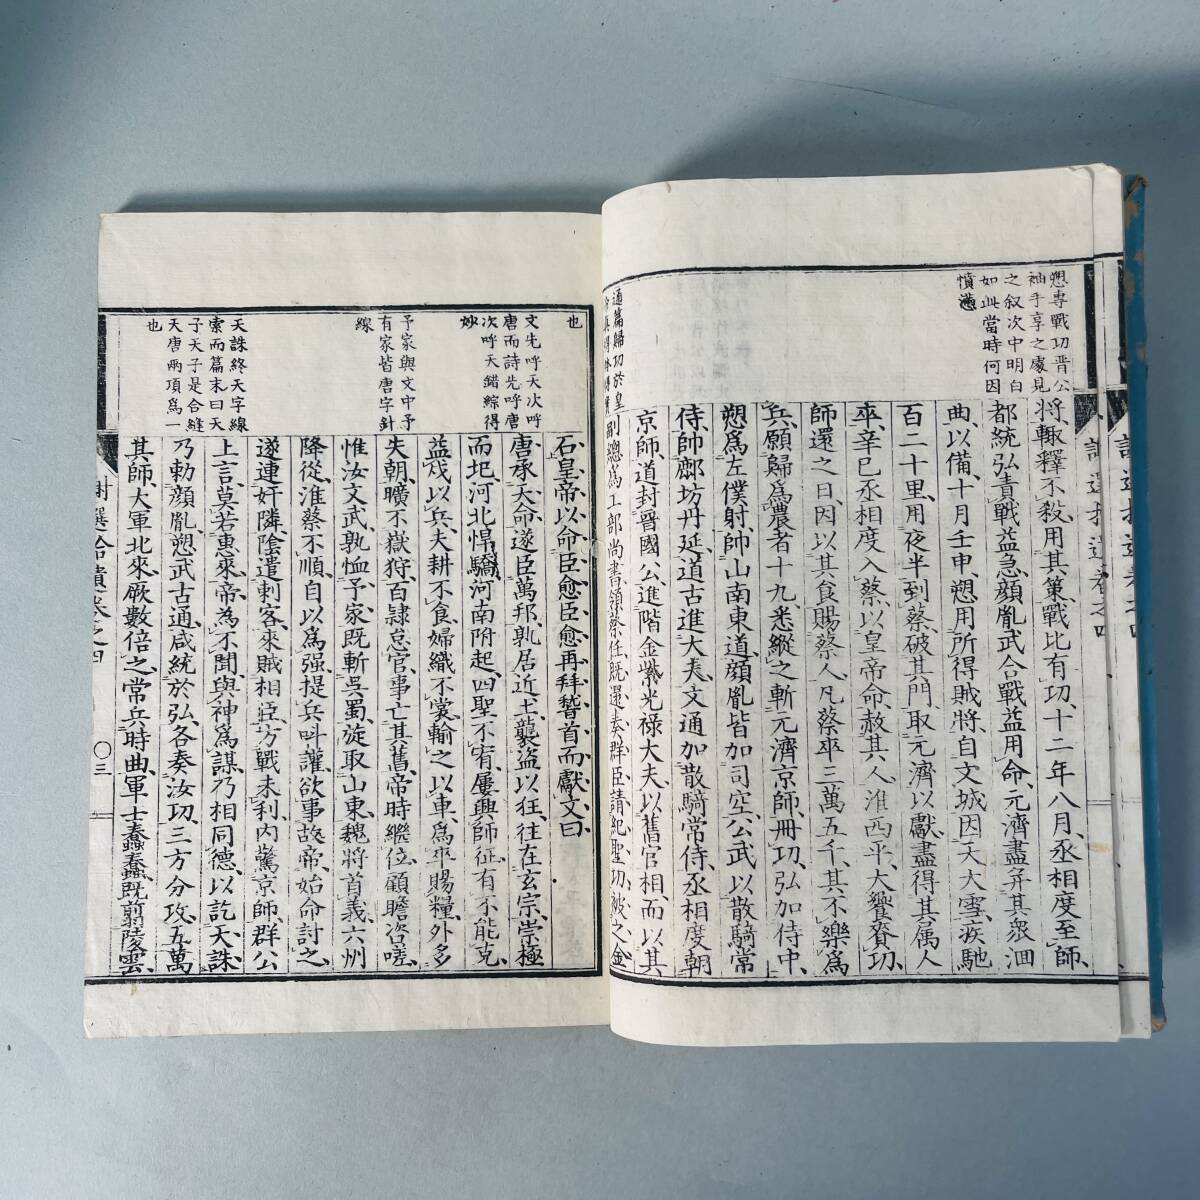 愬專戰功晋公
袖手享之處見
之叙次中明白
如此當時何因
憤懣
將輙釋不殺用其策戰比有功十二年八月丞相度至師
都統弘責戰益急顔胤武合戰益用命元濟盡并其衆洄
曲以備十月壬申愬用所得賊將自文城因天大雪疾馳
百二十里用夜半到蔡破其門取元濟以獻盡得其属人
卒辛巳丞相度入蔡以皇帝命赦其人淮西平大饗賚功
師還之日因以其食賜蔡人凡蔡卒三萬五千其不樂爲
兵願歸爲農者十九悉縱之斬元濟京師冊功弘加侍中
愬爲左僕射帥山南東道顔胤皆加司空公武以散騎常
侍帥鄜坊丹延道古進大夫文通加散騎常侍丞相度朝
京師道封晉國公進階金紫光禄大夫以舊官相而以其
通篇歸功於皇
副總爲工部尚書領蔡任既還奏群臣請紀聖功被之金
也
文先呼天次呼
唐而詩先呼唐
次呼天錯綜得
妙
予家與文中予
有家皆唐字針
線
天誅終天字線
索而篇末曰天
子天子是合縫
天唐兩項爲一
也
石皇帝以命臣愈臣愈再拜稽首而獻文曰
唐承大命遂臣萬邦孰居近土襲盜以狂往在玄宗崇極
而圮河北悍驕河南附起四聖不宥屢興師征有不能克
益戍以兵夫耕不食婦織不裳輸之以車爲卒賜糧外多
失朝曠不嶽狩百隷怠官事亡其舊帝時繼位顧瞻咨嗟
惟汝文武孰恤予家既斬吳蜀旋取山東魏將首義六州
降從淮蔡不順自以爲强提兵叫讙欲事故帝始命討之
遂連奸隣陰遣刺客來賊相臣方戰未利内驚京師群公
上言莫若惠來帝為不聞與神爲謀乃相同德以訖天誅
乃勅顔胤愬武古通咸統於弘各奏汝功三方分攻五萬
其師大軍北來厥數倍之常兵時曲軍士蠢蠢既剪陵雲
謝選拾遺卷之四
〇三